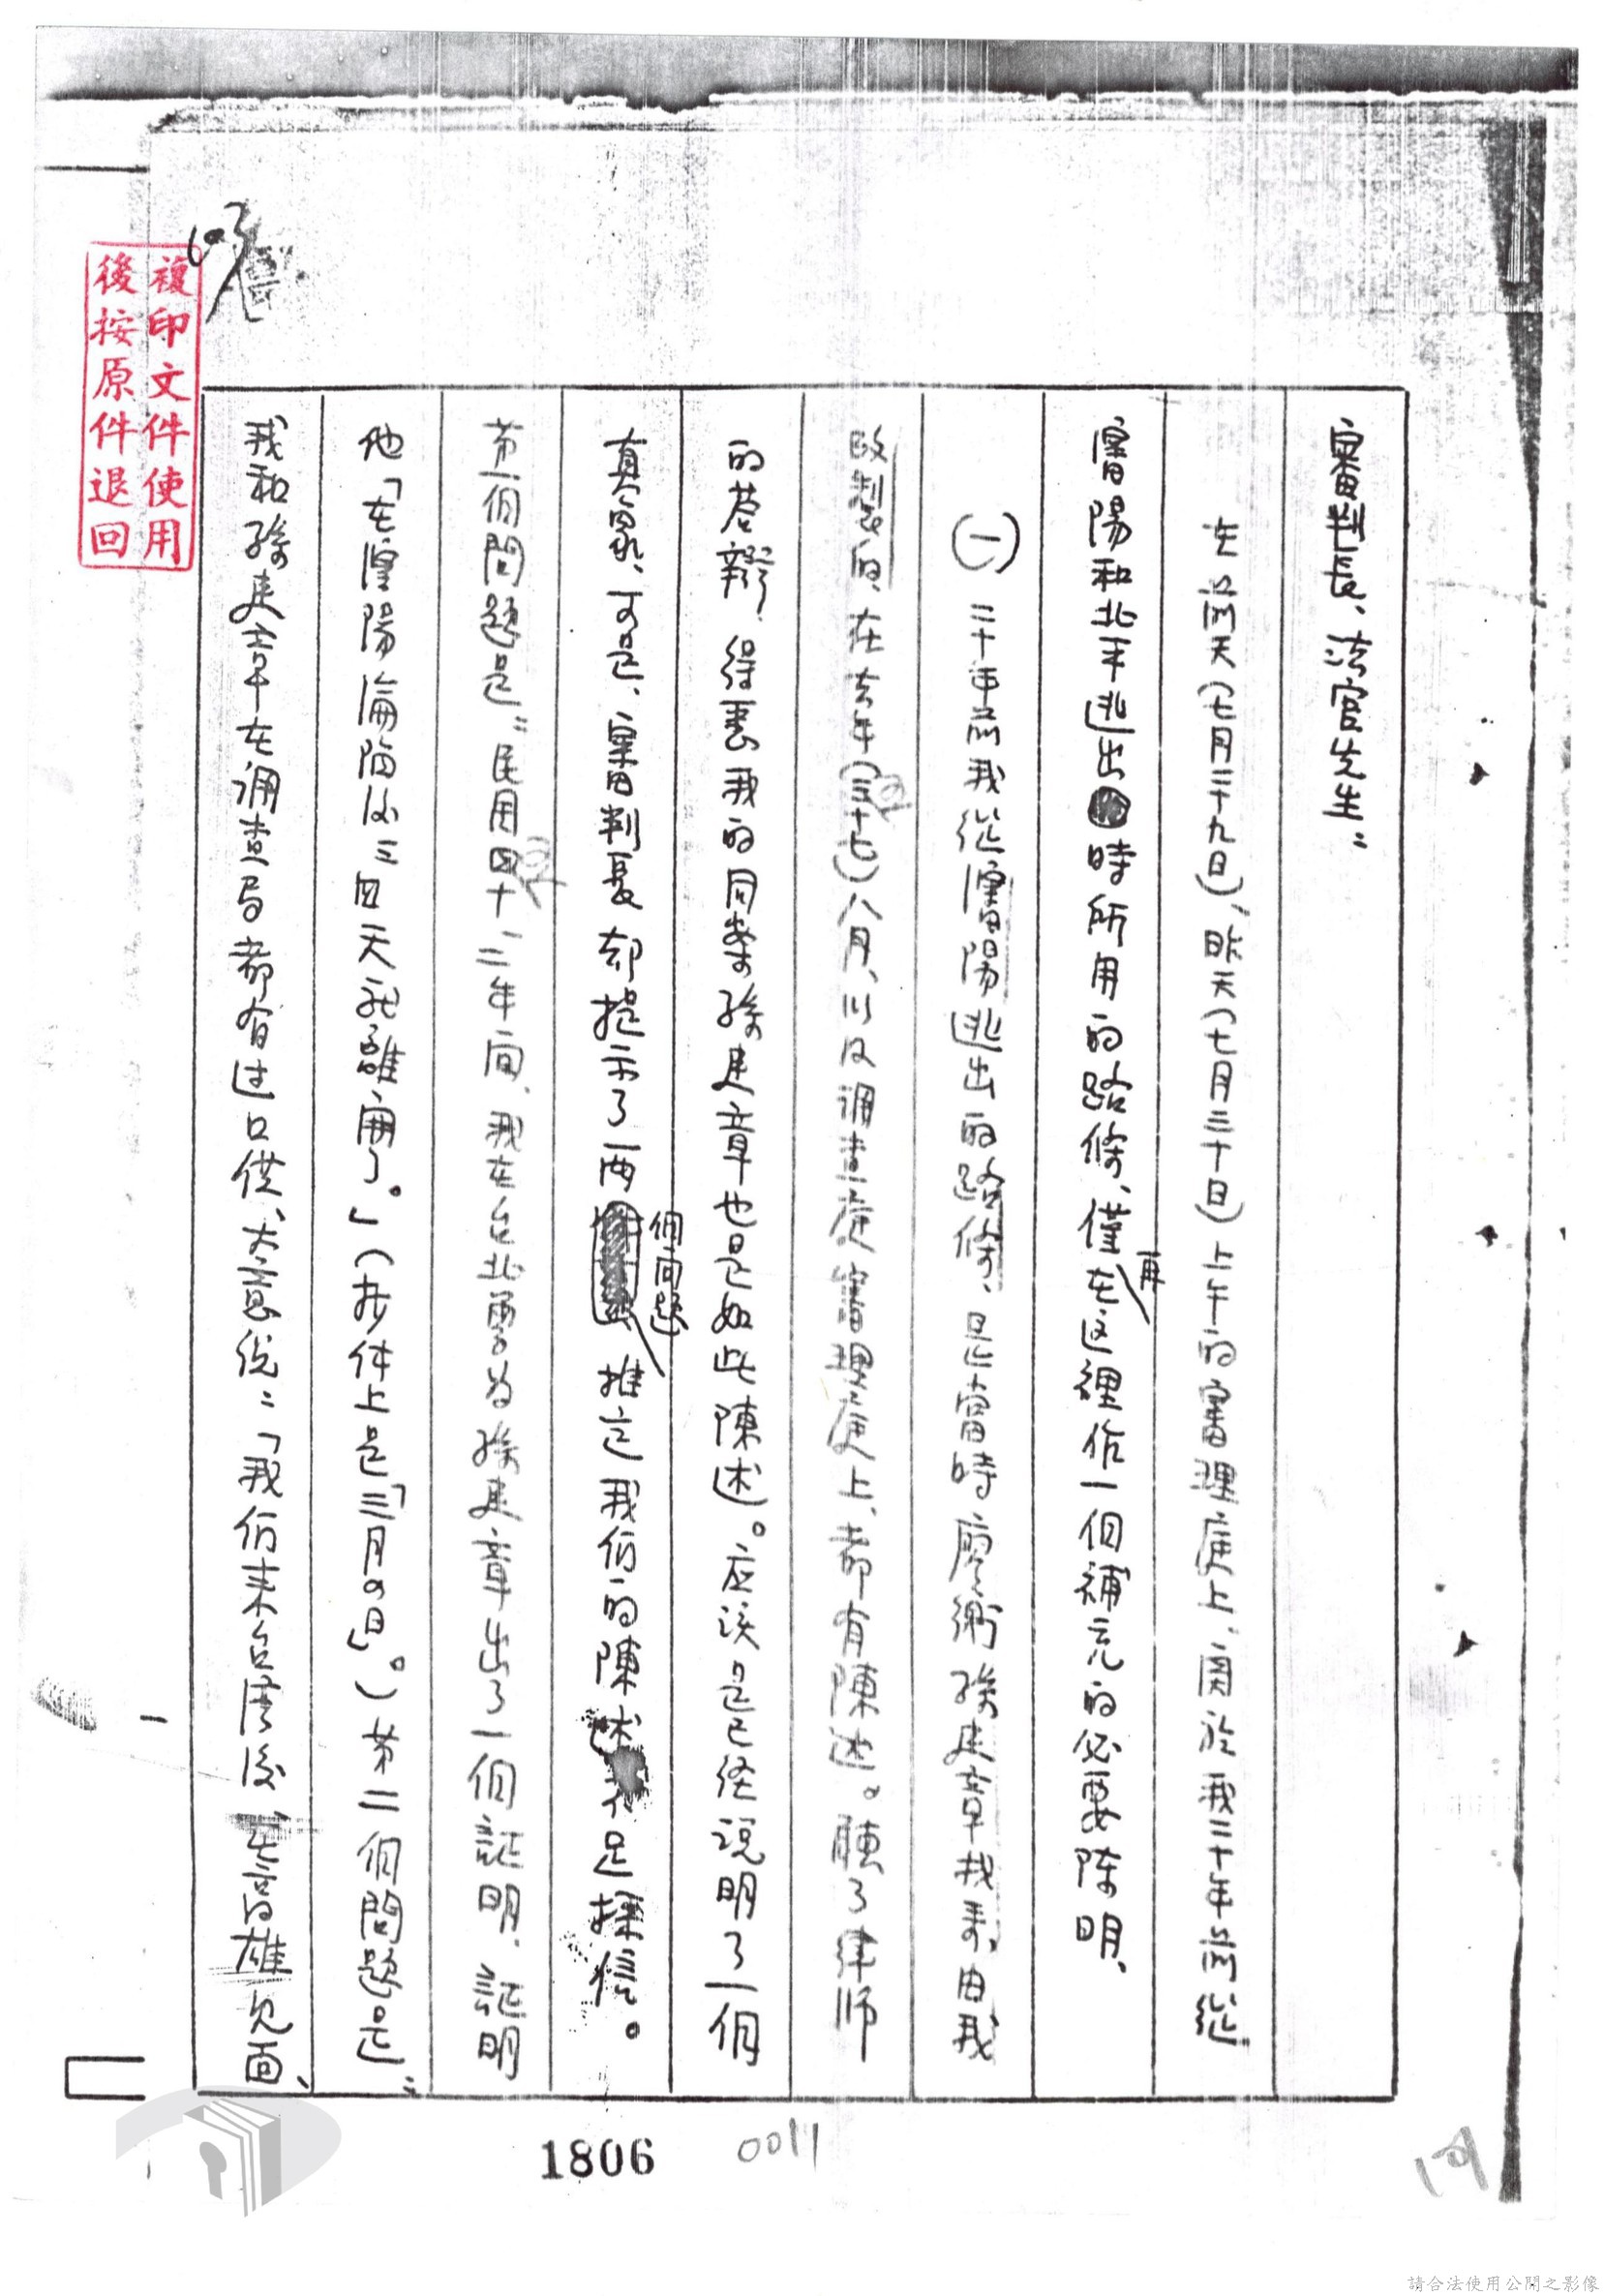 審判長、法官先生：
在前天（七月二十九日）、昨天（七月三十日）上午的審理庭上、関於我二十年前從
瀋陽和北平逃出時所用的路條、僅在這裡作一個補充的必要陳明、
再
(一)二十年前我從瀋陽逃出的路條、是當時廖衡孫建章找來、由我
改製的、在去年（五十七）八月、以及調查庭審理庭上、都有陳述。聽了律师
的答辯、得悉我的同案孫建章也是如此陳述。应该是已经說明了一個
真象、可是、審判長却提示了两個问题推定我们的陳述不足採信。
第一個問題是：民國四十一、二年间、我在台北曾为孫建章出了一個証明、証明
他「在瀋陽淪陷後三四天就離開了。」（抄件上是「三月四日」。）第二個問題是：
我和孫建章在調查局都有过口供、大意说：「我们来台湾後、在高雄見面、
複印文件使用
後按原件退回
1806
0011
請合法使用公開之影像